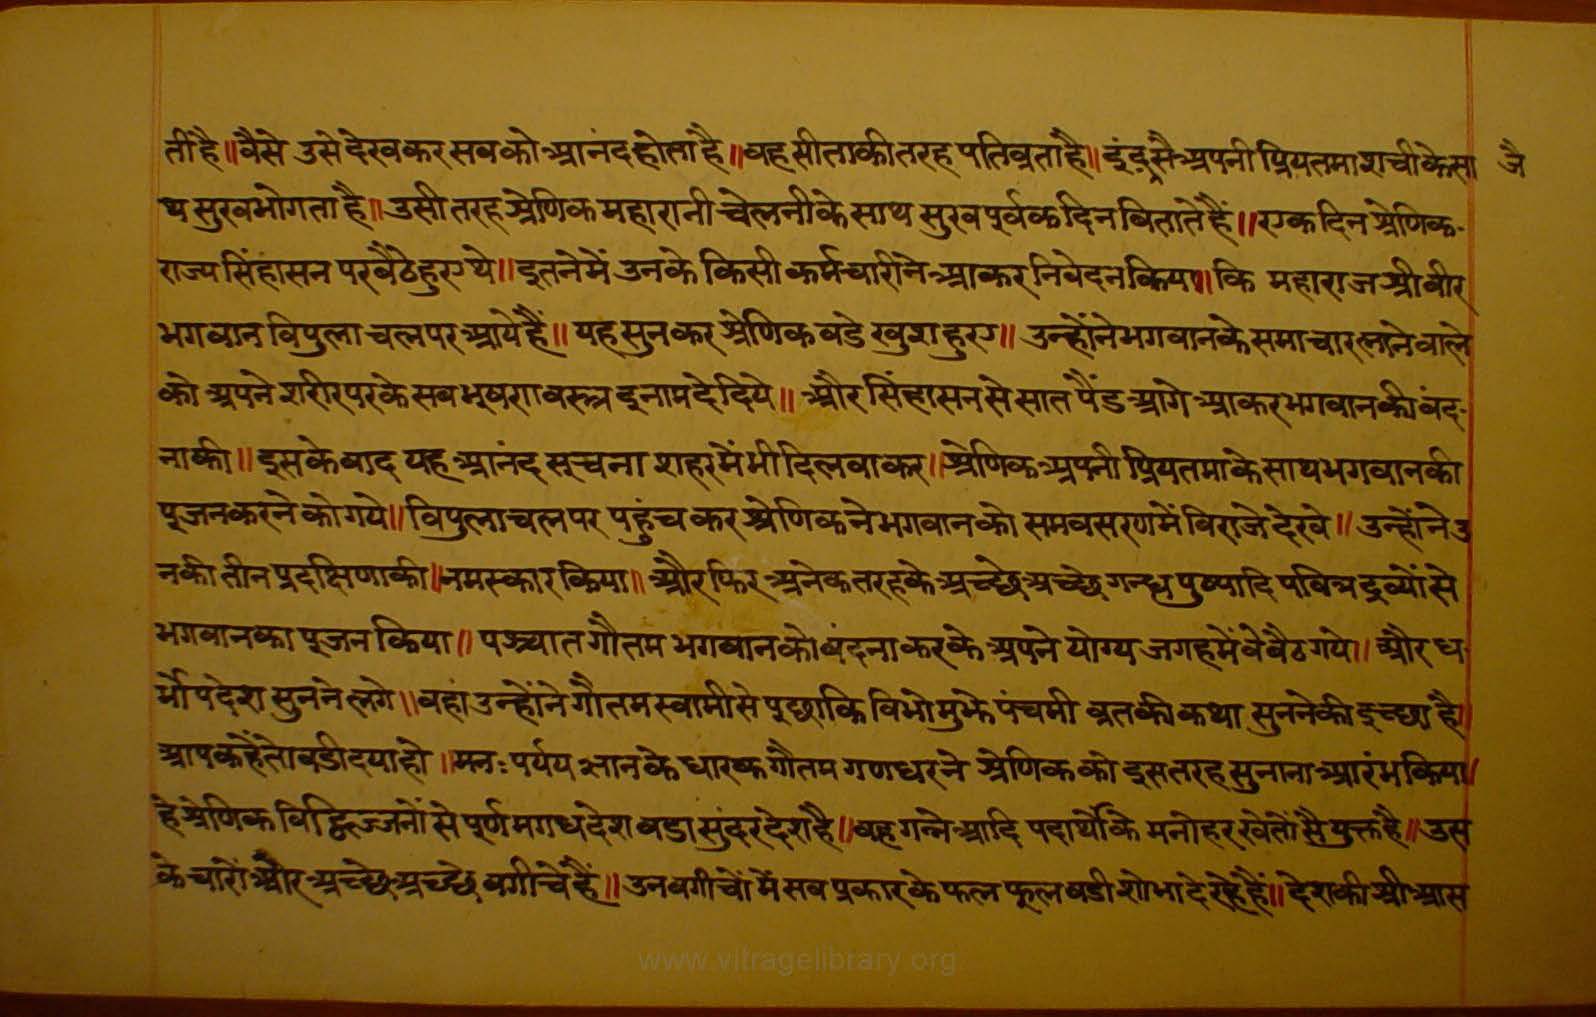 तीं है॥ वैसे उसे देखकर सबको आनंद होता है॥ वह सीताकी तरह पतिव्रता है॥ इंद्र सै अपनी प्रियतमा शचीके सा जै
थ सुख भोगता है॥ उसी तरह श्रेणिक महारानी चेलनीके साथ सुख पूर्वक दिन बिताते हैं॥ एक दिन श्रेणिक-
राज्य सिंहासन पर बैठे हुए थे॥ इतनेमें उनके किसी कर्मचारीने आकर निवेदन किया॥ कि महाराज श्री वीर
भगवान विपुलाचल पर आये हैं॥ यह सुनकर श्रेणिक बडे खुश हुए॥ उन्होंने भगवानके समाचार लाने वाले
को अपने शरीर परके सब भूषण वस्त्र इनाम दे दिये॥ और सिंहासन से सात पैंड आगे आकर भगवानकी वंद-
ना की॥ इसके बाद यह आनंद सूचना शहर में भी दिलवाकर॥ श्रेणिक अपनी प्रियतमाके साथ भगवानकी
पूजन करने को गये॥ विपुलाचल पर पहुंच कर श्रेणिकने भगवानको समवसरणमें विराजे देखे॥ उन्होंने उ
नकी तीन प्रदक्षिणा की॥ नमस्कार किया॥ और फिर अनेक तरहके अच्छे अच्छे गन्ध पुष्पादि पवित्र द्रव्यों से
भगवानका पूजन किया॥ पश्चात गौतम भगवानको वंदना करके अपने योग्य जगहमें वे बैठ गये॥ और ध-
र्मोपदेश सुनने लगे॥ वहां उन्होंने गौतम स्वामीसे पूछाकि विभो मुझे पंचमी व्रतकी कथा सुननेकी इच्छा है॥
आप कहें तो बडी दया हो॥ मनः पर्यय ज्ञानके धारक गौतम गणधरने श्रेणिक को इस तरह सुनाना आरंभ किया॥
हे श्रेणिक विद्विज्जनों से पूर्ण मगध देश बडा सुंदर देश है॥ वह गन्ने आदि पदार्थोंके मनोहर खेतों सै युक्त है॥ उस
के चारों और अच्छे अच्छे बगीचे हैं॥ उन बगीचों में सब प्रकारके फल फूल बडी शोभा दे रहे हैं॥ देशकी श्री आस
www.vitragelibrary.org